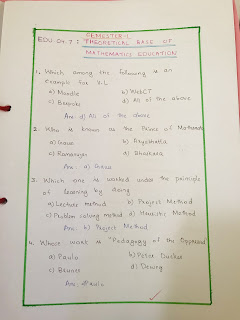 SEMESTER-1
EDU 04.7 : THEORETICAL BASE OF
MATHEMATICS EDUCATION
1. Which among the following is an
example for V.L
a) Moodle b) WebCT
c) d) All of the above
Ans: d) All of the above
2. Who is known as the Prince of Mathematics
a) Gauss b) Aryabhatta
c) Ramanujan d) Bhaskara
Ans: a) Gauss
3. Which one is worked under the principle
of learning by doing
a) Lecture method b) Project Method
c) Problem solving method d) Heuristic Method
Ans: b) Project Method
4. Whose work is "Pedagogy of the Oppressed
a) Paulo b) Peter
c) Bruner d) Dewey
Ans: a) Paulo